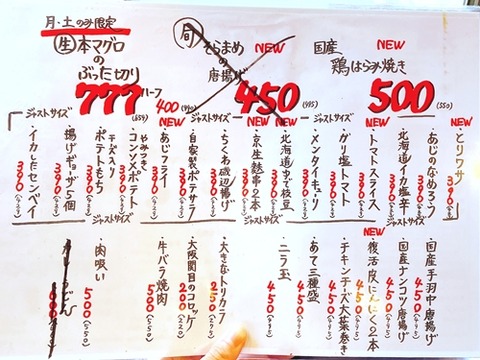 月・土のみ限定
生 本マグロ
の
ぶった切り
777
ハーフ
400
旬
そらまめ
の
唐揚げ
NEW
450
(495)
国産
NEW
鶏はらみ焼き
500
(550)
ジャストサイズ
ジャストサイズ
ジャストサイズ
NEW
・とりワサ
390
・あじのなめろう
390
・北海道イカ塩辛
390
NEW
・トマトスライス
390
・ガリ塩トマト
390
・メンタイキューリ
390
NEW
・北海道ゆで枝豆
390
・京生麩串2本
390
・ちくわ磯辺揚げ
390
・自家製ポテサラ
390
NEW
・あじフライ
390
やみつき
・コンソメポテト
390
チーズ入り
・ポテトもち
390
・揚げギョーザ5個
390
・イカしたセンベイ
390
・国産手羽中唐揚げ
450
・国産ナンコツ唐揚げ
450
NEW
・復活皮にんにく2本
450
・チキンチーズ大葉巻き
450
・あて三種盛
450
・ニラ玉
450
・大きなトリカラ
250
・大阪関目のコロッケ
200
・牛バラ焼肉
500
・肉吸い
500